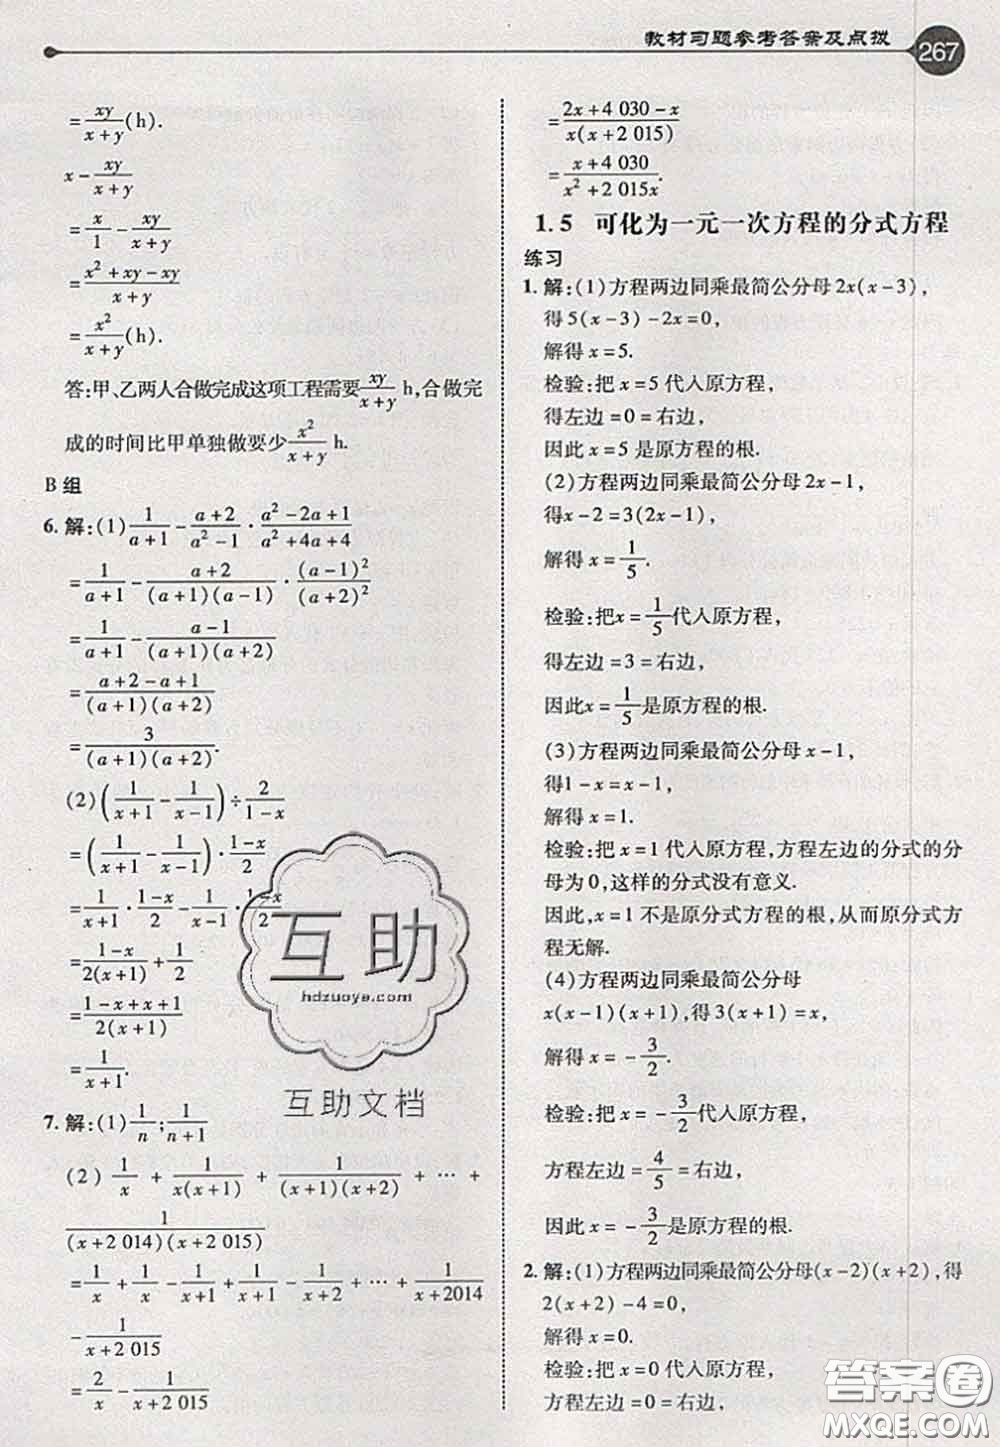 教材习题参考答案及点拨 267
=xy/(x+y)(h).
x-xy/(x+y)
=x/1-xy/(x+y)
=(x²+xy-xy)/(x+y)
=x²/(x+y)(h).
答:甲、乙两人合做完成这项工程需要xy/(x+y) h,合做完
成的时间比甲单独做要少x²/(x+y) h.
B 组
6. 解:(1)1/(a+1)-(a+2)/(a²-1)·(a²-2a+1)/(a²+4a+4)
=1/(a+1)-(a+2)/((a+1)(a-1))·(a-1)²/(a+2)²
=1/(a+1)-(a-1)/((a+1)(a+2))
=(a+2-a+1)/((a+1)(a+2))
=3/((a+1)(a+2)).
(2)(1/(x+1)-1/(x-1))÷2/(1-x)
=(1/(x+1)-1/(x-1))·(1-x)/2
=1/(x+1)·(1-x)/2-1/(x-1)·(1-x)/2
=(1-x)/(2(x+1))+1/2
=(1-x+x+1)/(2(x+1))
=1/(x+1).
7. 解:(1)1/n;1/(n+1)
(2) 1/x + 1/(x(x+1)) + 1/((x+1)(x+2)) + ··· +
1/((x+2 014)(x+2 015))
=1/x+1/x-1/(x+1)+1/(x+1)-1/(x+2)+···+1/(x+2014)
-1/(x+2 015)
=2/x-1/(x+2 015)
=(2x+4 030-x)/(x(x+2 015))
=(x+4 030)/(x²+2 015x).
1.5 可化为一元一次方程的分式方程
练习
1. 解:(1)方程两边同乘最简公分母2x(x-3),
得5(x-3)-2x=0,
解得x=5.
检验:把x=5代入原方程,
得左边=0=右边,
因此x=5是原方程的根.
(2)方程两边同乘最简公分母2x-1,
得x-2=3(2x-1),
解得x=1/5.
检验:把x=1/5代入原方程,
得左边=3=右边,
因此x=1/5是原方程的根.
(3)方程两边同乘最简公分母x-1,
得1-x=x-1,
解得x=1.
检验:把x=1代入原方程,方程左边的分式的分
母为0,这样的分式没有意义.
因此,x=1不是原分式方程的根,从而原分式方
程无解.
(4)方程两边同乘最简公分母
x(x-1)(x+1),得3(x+1)=x,
解得x=-3/2.
检验:把x=-3/2代入原方程,
方程左边=4/5=右边,
因此x=-3/2是原方程的根.
2. 解:(1)方程两边同乘最简公分母(x-2)(x+2),得
2(x+2)-4=0,
解得x=0.
检验:把x=0代入原方程,
方程左边=右边,
互助
hdzuoye.com
互助文档
答案圈
MXQE.COM